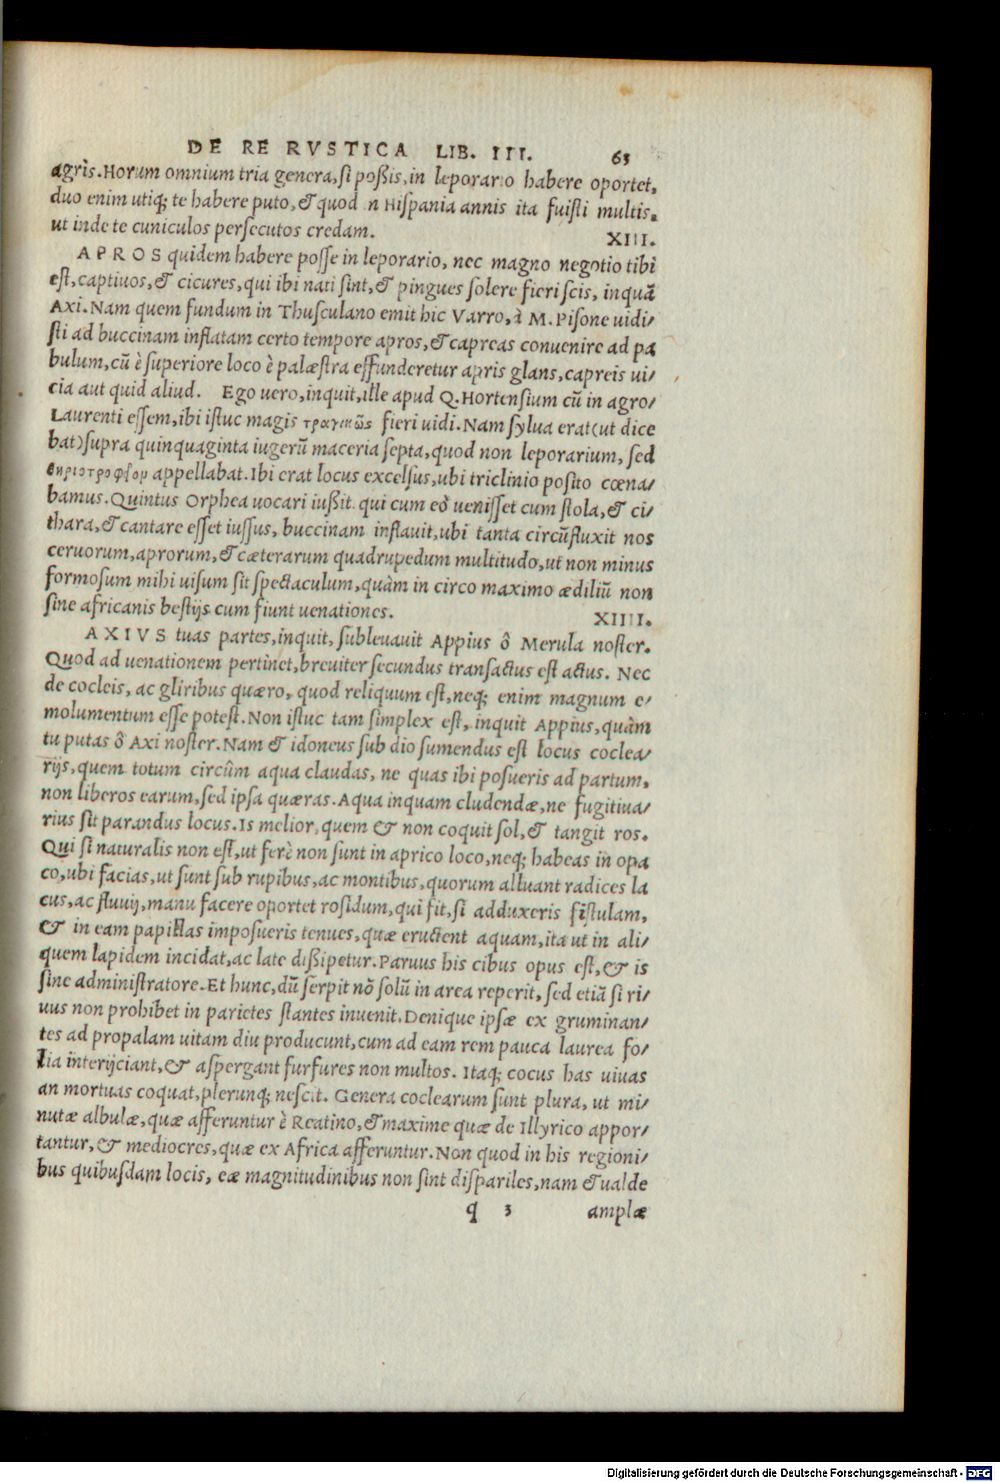 DE RE RVSTICA LIB. III. 63
agrìs. Horum omnium tria genera, si poßis, in leporario habere oportet,
duo enim utiq; te habere puto, & quod in Hispania annis ita fuisti multis,
ut inde te cuniculos persecutos credam.
XIII.
APROS quidem habere posse in leporario, nec magno negotio tibi
est, captiuos, & cicures, qui ibi nati sint, & pingues solere fieri scis, inquã
Axi. Nam quem fundum in Thusculano emit hic Varro, à M. Pisone uidi/
sti ad buccinam inflatam certo tempore apros, & capreas conuenire ad pa
bulum, cũ è superiore loco è palæstra effunderetur apris glans, capreis ui/
cia aut quid aliud. Ego uero, inquit, ille apud Q. Hortensium cũ in agro/
Laurenti essem, ibi istuc magis τραγικῶς fieri uidi. Nam sylua erat (ut dice
bat) supra quinquaginta iugerũ maceria septa, quod non leporarium, sed
θηριοτροφεῖον appellabat. Ibi erat locus excelsus, ubi triclinio posito cœna/
bamus. Quintus Orphea uocari iußit. qui cum eò uenisset cum stola, & ci/
thara, & cantare esset iussus, buccinam inflauit, ubi tanta circũfluxit nos
ceruorum, aprorum, & cæterarum quadrupedum multitudo, ut non minus
formosum mihi uisum sit spectaculum, quàm in circo maximo ædiliũ non
sine africanis bestijs cum fiunt uenationes.
XIIII.
AXIVS tuas partes, inquit, subleuauit Appius ô Merula noster.
Quod ad uenationem pertinet, breuiter secundus transactus est actus. Nec
de cocleis, ac gliribus quæro, quod reliquum est, neq; enim magnum e/
molumentum esse potest. Non istuc tam simplex est, inquit Appius, quàm
tu putas ô Axi noster. Nam & idoneus sub dio sumendus est locus coclea/
rijs, quem totum circũm aqua claudas, ne quas ibi posueris ad partum,
non liberos earum, sed ipsa quæras. Aqua inquam cludendæ, ne fugitiua/
rius sit parandus locus. Is melior, quem & non coquit sol, & tangit ros.
Qui si naturalis non est, ut ferè non sunt in aprico loco, neq; habeas in opa
co, ubi facias, ut sunt sub rupibus, ac montibus, quorum alluant radices la
cus, ac fluuij, manu facere oportet rosidum, qui fit, si adduxeris fistulam,
& in eam papillas imposueris tenues, quæ eructent aquam, ita ut in ali/
quem lapidem incidat, ac late dißipetur. Paruus his cibus opus est, & is
sine administratore. Et hunc, dũ serpit nõ solũ in area reperit, sed etiã si ri/
uus non prohibet in parietes stantes inuenit. Denique ipsæ ex gruminan/
tes ad propalam uitam diu producunt, cum ad eam rem pauca laurea fo/
lia interijciant, & aspergant furfures non multos. Itaq; cocus has uiuas
an mortuas coquat, plerunq; nescit. Genera coclearum sunt plura, ut mi/
nutæ albulæ, quæ afferuntur è Reatino, & maxime quæ de Illyrico appor/
tantur, & mediocres, quæ ex Africa afferuntur. Non quod in his regioni/
bus quibusdam locis, eæ magnitudinibus non sint dispariles, nam & ualde
q 3 amplæ
Digitalisierung gefördert durch die Deutsche Forschungsgemeinschaft - DFG